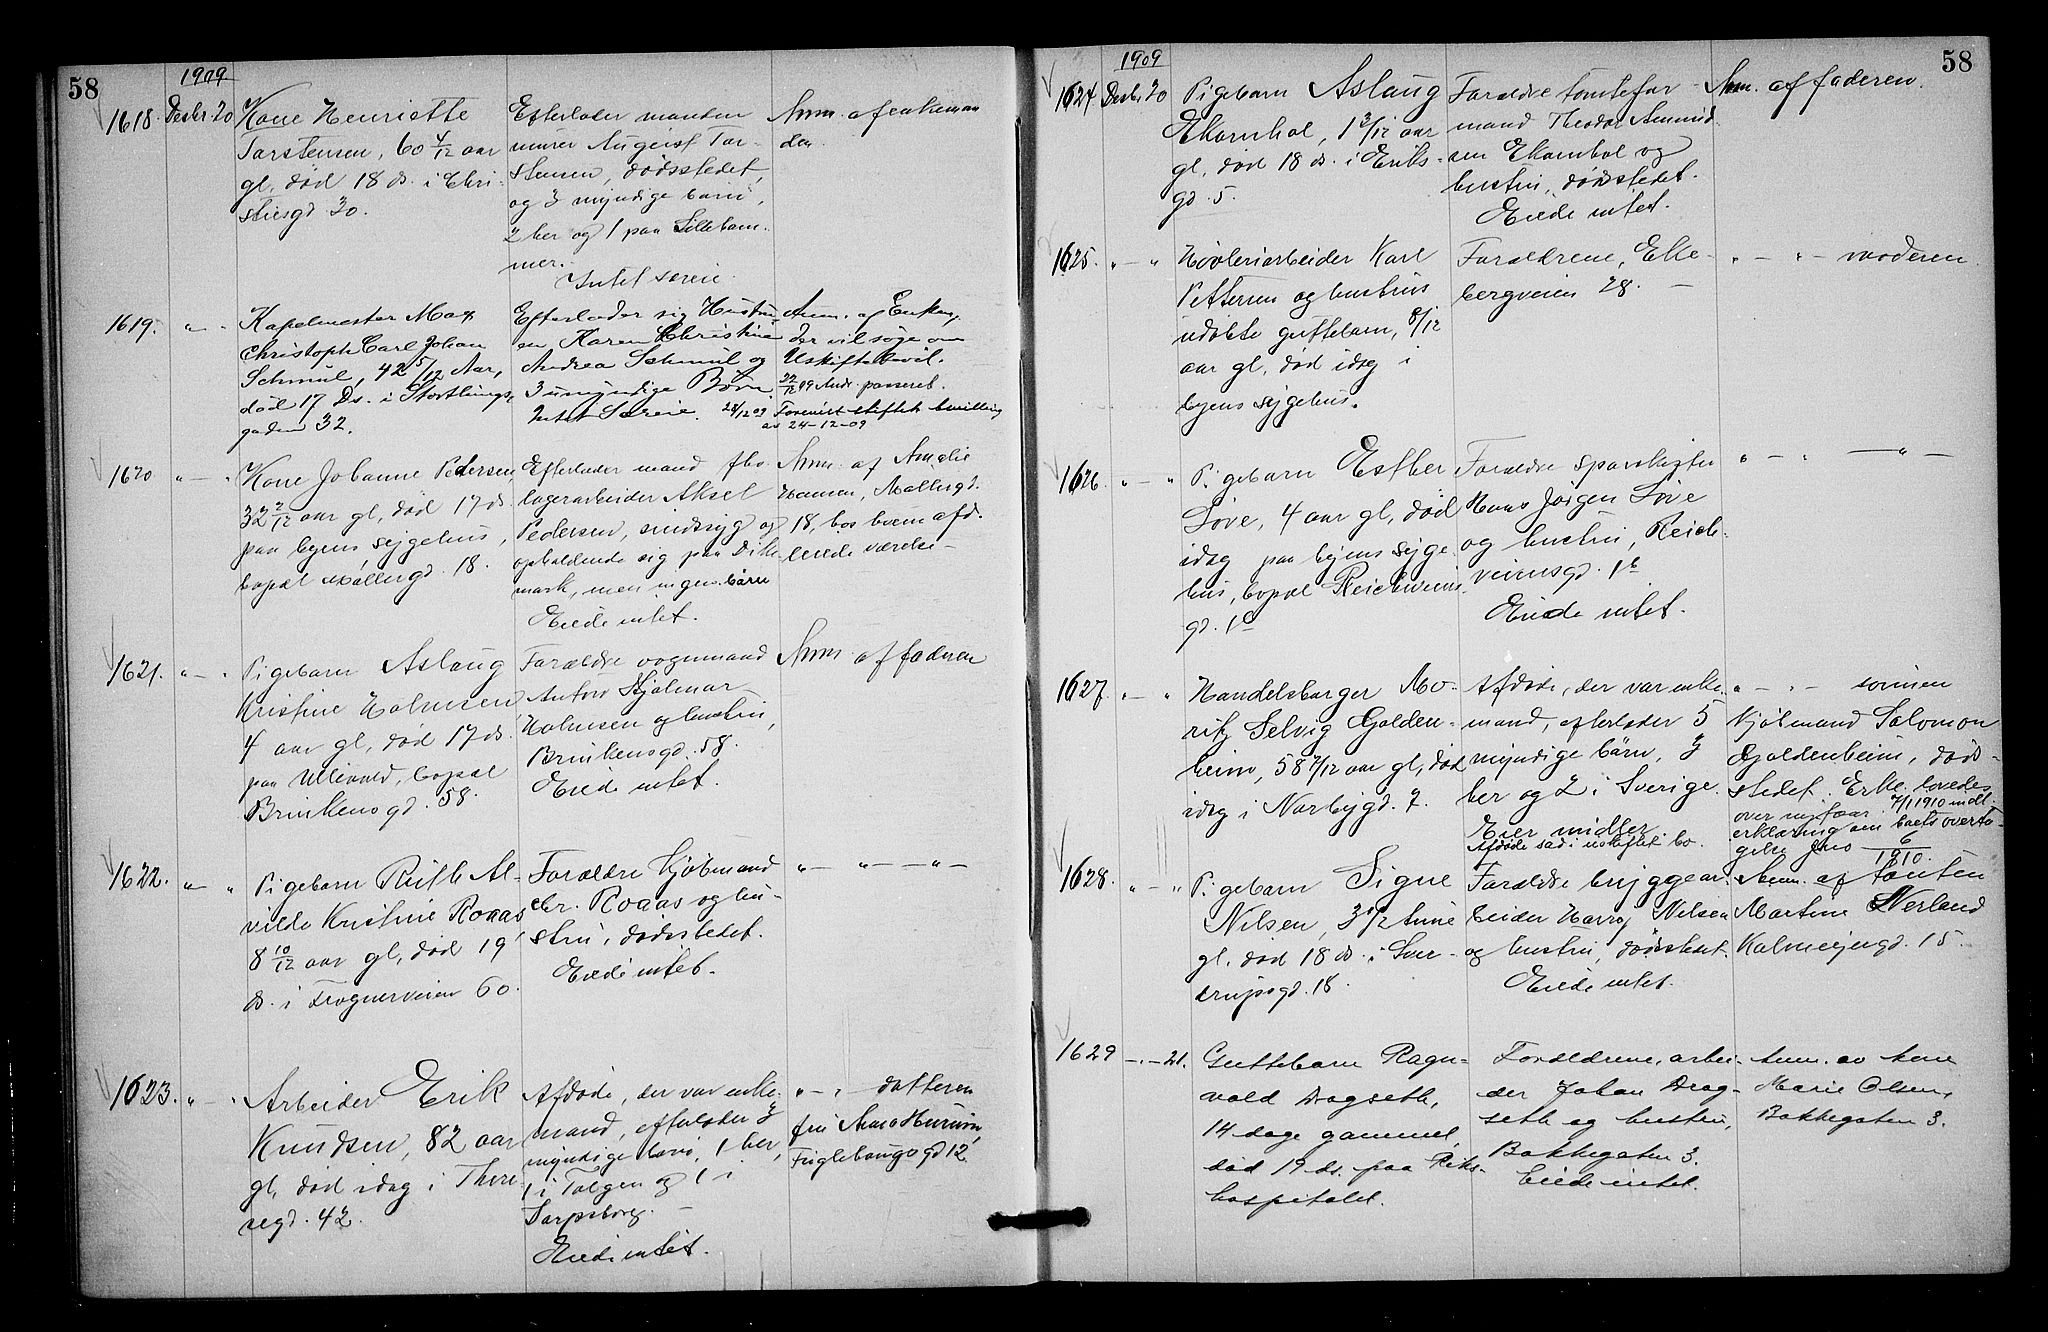 58
1909
1618. Desbr. 20
Kone Henriette
Torstensen, 60 4/12 aar
gl, død 18 ds. i Chri-
stiesgd 30.
Efterlader manden
murer August Tor-
stensen, dødsstedet,
og 3 myndige børn,
2 her og 1 paa Lilleham-
mer.
Intet særeie.
Anm. af enkeman
den.
1619. " — "
Kapelmester Max
Christoph Carl Johan
Schmul, 42 5/12 Aar,
død 17 Ds. i Stortings-
gaden 32.
Efterlader sig Hustru-
en Karen Christine
Andrea Schmul og
3 umyndige Børn.
Intet Særeie.
Anm. og Enken,
der vil søge om
Uskiftebevil.
22/12 09 Ands. passeret.
24/12 09 Forevist skiftets bevilling
av 24-12-09
1620 " — "
Kone Johanne Pedersen,
32 2/12 aar gl, død 17 ds.
paa byens sygehus,
bopæl Møllergd. 18.
Efterlader mand fhv.
lagerarbeider Aksel
Pedersen, sindssyg og
opholdende sig paa Dike
mark, men ingen børn
Eiede intet.
Anm. af Amalie
Hansen, Møllergd.
18, hos hvem afd.
leiede værelse —
1621. " — "
Pigebarn Aslaug
Kristine Holmsen
4 aar gl, død 17 ds.
paa Ullevold, bopæl
Brinkensgd. 58.
Forældre vognmand
Anton Hjalmar
Holmsen og hustru,
Brinkensgd. 58.
Eiede intet.
Anm. af faderen
1622. " — "
Pigebarn Ruth Al-
vilde Kristine Roaas
8 10/12 aar gl, død 19
ds. i Frognerveien 60.
Forældre kjøbmand
Chr. Roaas og hu-
stru, dødsstedet.
Eiede intet.
" — " — — " —
1623. " — "
Arbeider Erik
Knudsen, 82 aar
gl, død idag i There-
segd. 42.
Afdøde, der var enke-
mand, efterlader 3
myndige børn, 1 her,
1 i Tolgen og 1 i
Sarpsborg. —
Eiede intet.
" — " datteren
fru Anna Hurum,
Fuglehaugsgd 12.
1909
58
1624 Desbr. 20
Pigebarn Aslaug
Ekornhol, 1 3/12 aar
gl, død 18 ds. i Eriks-
gd. 5.
Forældre tomtefor-
mand Theodor Amund
sen Ekornhol og
hustru, dødsstedet.
Eiede intet.
Anm. af faderen.
1625. " — "
Høvleriarbeider Karl
Pettersens og hustrus
udøbte guttebarn, 8/12
aar gl, død idag i
byens sygehus.
Forældrene, Eke-
bergveien 28. —
" — " — moderen.
1626. " — "
Pigebarn Esther
Love, 4 aar gl, død
idag paa byens syge
hus, bopæl Reichweins
gd. 1 b
Forældre sporskifter
Hans Jørgen Love
og hustru, Reich-
weinsgd. 1 b
Eiede intet.
" — " — " —
1627. " — "
Handelsborger Mo-
ritz Selvig Golden-
heim, 58 7/12 aar gl, død
idag i Norbygd. 7.
Afdøde, der var enke-
mand, efterlader 5
myndige børn, 3
her og 2 i Sverige.
Eier midler.
Afdøde sad i uskiftet bo.
" — " — sønnen
kjøbmand Salomon
Goldenheim, døds-
stedet. Erkl. lovedes
over nyttaar. 7/1 1910 indl.
erklæring om boets overta-
gelse
1628. " — "
Pigebarn Signe
Nilsen, 3 1/2 time
gl, død 18 ds. i Sver-
drupsgd. 18.
Forældre bryggear-
beider Harry Nilsen
og hustru, dødsstedet.
Eiede intet.
Anm. af tanten
Martine Nerland
Kalmeijergd. 15
1629 — " — 21.
Guttebarn Ragn-
vald Dragseth,
14 dage gammel,
død 19 ds. paa Riks-
hospitalet.
Forældrene, arbei-
der Johan Drag-
seth og hustru,
Bakkegaten 3.
Eiede intet.
Anm. av kone
Marie Olsen,
Bakkegaten 3.